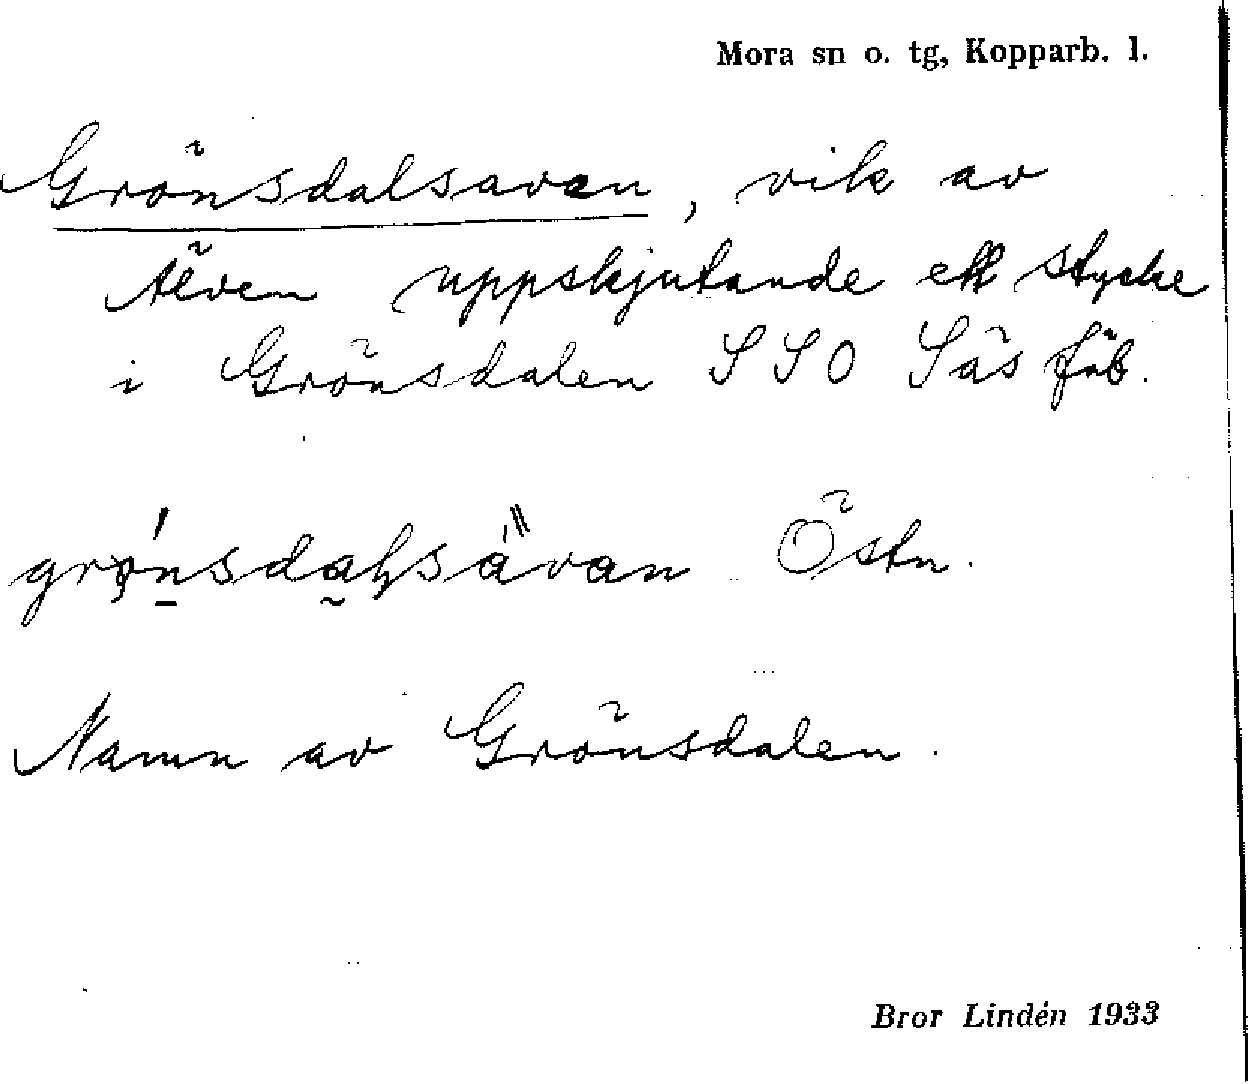 Mora sn o. tg, Kopparb. l.
Grönsdalsavan, vik av
älven uppskjutande ett stycke
i Grönsdalen SSO Säs fäb.
Östn.
Namn av Grönsdalen.
Bror Lindén 1933